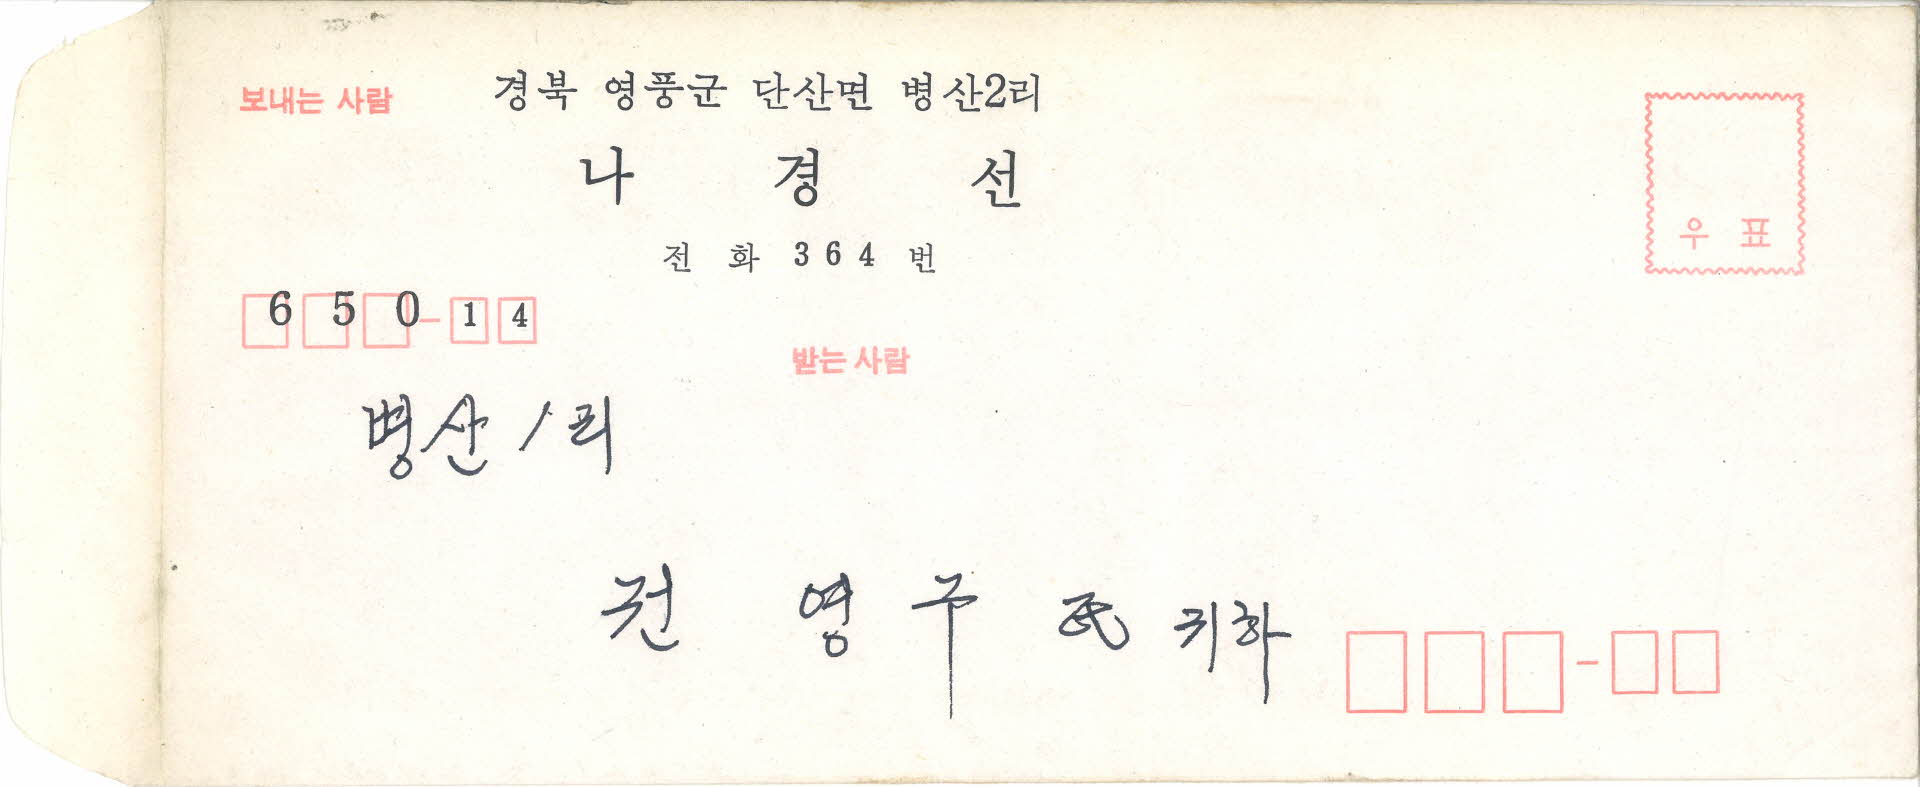 보내는 사람 경북 영풍군 단산면 병산2리
나 경 선
전 화 3 6 4 번
우 표
6 5 0 - 1 4
받는 사람
병산 1리
권 영 구 氏 귀하